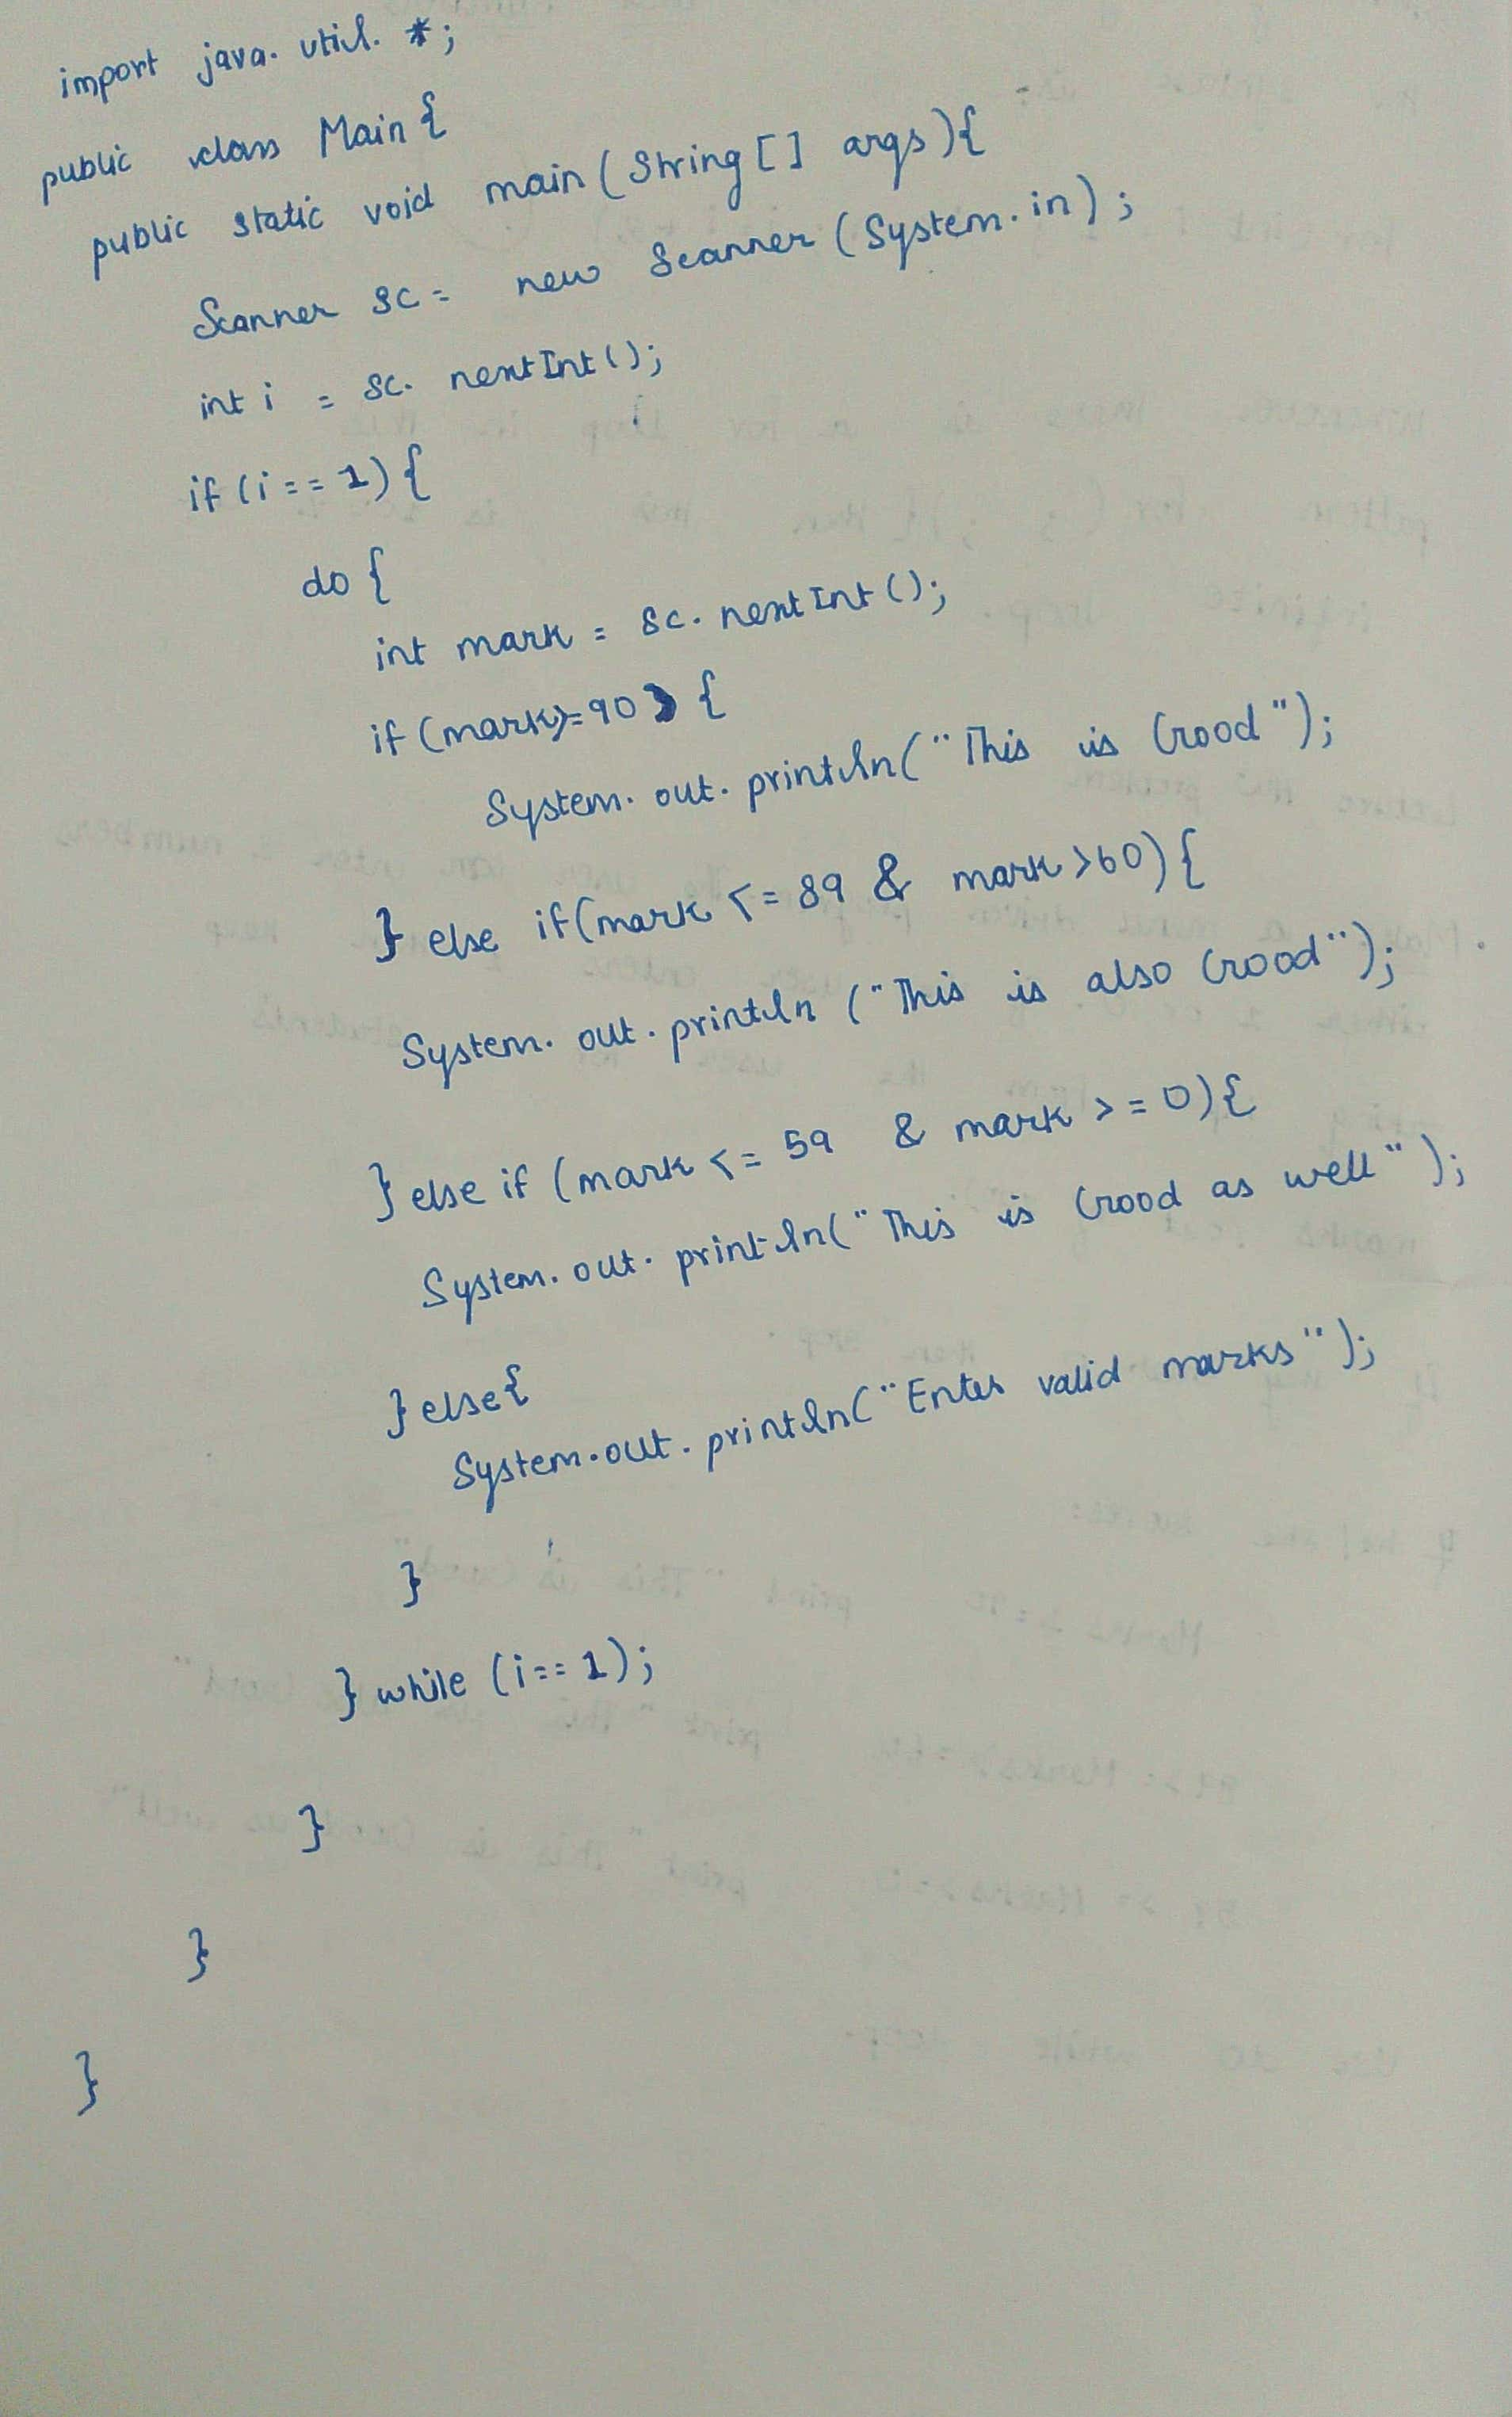 import java.util.*;
public class Main{
public static void main(String[] args){
Scanner sc = new Scanner(System.in);
int i = sc.nextInt();
if(i==1){
do{
int mark = sc.nextInt();
if(mark>=90){
System.out.println("This is Good");
} else if(mark <= 89 & mark >60){
System.out.println("This is also Good");
} else if (mark <= 59 & mark >= 0){
System.out.println("This is Good as well");
} else{
System.out.println("Enter valid marks");
}
} while (i==1);
}
}
}